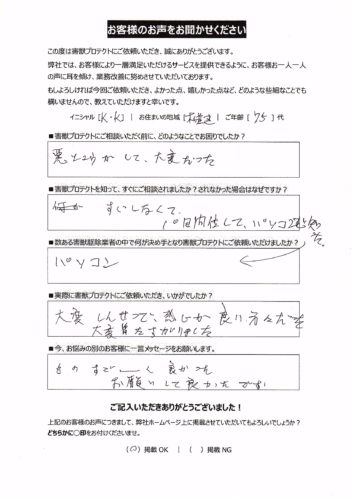 お客様のお声をお聞かせください
この度は害獣プロテクトにご依頼いただき、誠にありがとうございます。
弊社では、お客様により一層満足いただけるサービスを提供できるように、お客様お一人一人
の声に耳を傾け、業務改善に努めさせていただいております。
もしよろしければ今回ご依頼いただき、よかった点、嬉しかった点など、どのような些細なことでも
構いませんので、教えていただけますと幸いです。
イニシャル [K・K] お住まいの地域 [ ] ご年齢 (75) 代
■害獣プロテクトにご相談いただく前に、どのようなことでお困りでしたか?
して、大変だった
■害獣プロテクトを知って、すぐにご相談されましたか?されなかった場合はなぜですか?
すぐしなくて、
パソコン
■数ある害獣駆除業者の中で何が決め手となり害獣プロテクトにご依頼いただけましたか?
パソコン
■実際に害獣プロテクトにご依頼いただき、いかがでしたか?
大変 しんせつで、感じが 良い
大変
■今、お悩みの別のお客様に一言メッセージをお願いします。
ものすごーく 良かった
お願いして良かったです
ご記入いただきありがとうございました!
上記のお客様のお声につきまして、弊社ホームページ上に掲載させていただいてもよろしいでしょうか?
どちらかに○印をお付けくださいませ。
(○) 掲載 OK | ( ) 掲載 NG